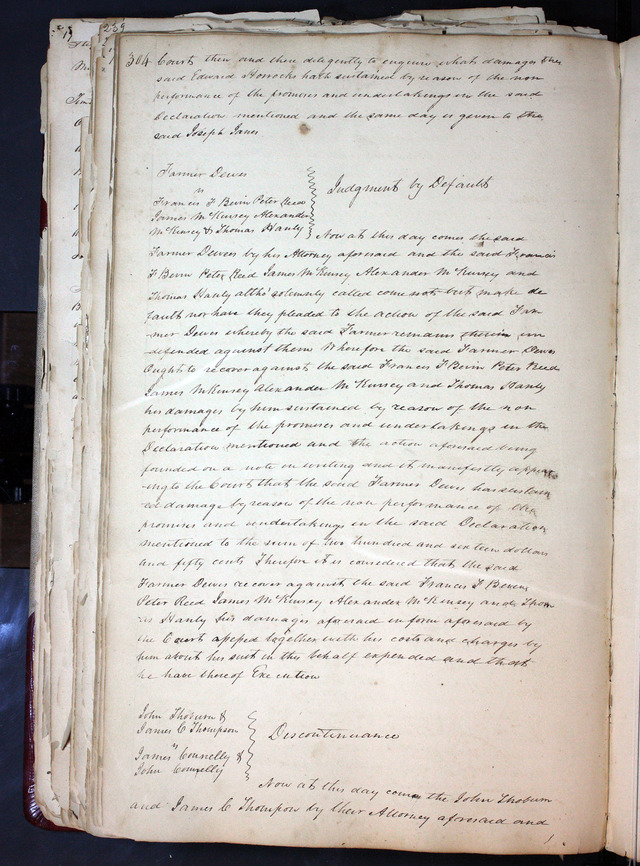 304 Courts then and there diligently to enquire what damages the
said Edward Horrocks hath sustained by reason of the non
performance of the promises and undertakings in the said
Declaration mentioned and the same day is given to the
said Joseph Janes
Farmer Dewes
vs
Francis F Bevin Peter Reed
James McKinsey Alexander
McKinsey & Thomas Hanly
Judgment by Default
Now at this day comes the said
Farmer Dewes by his Attorney aforesaid and the said Francis
F Bevin Peter Reid James McKinsey Alexander McKinsey and
Thomas Hanly altho' solemnly called come not but make de
fault nor have they pleaded to the action of the said Far
mer Dewes whereby the said Farmer remains therein un
defended against them Wherefore the said Farmer Dewes
Ought to recover against the said Francis F Bevin Peter Reed
James McKinsey Alexander McKinsey and Thomas Hanly
his damages by him sustained by reason of the non
performance of the promises and undertakings in the
Declaration mentioned and the action aforesaid being
founded on a note in writing and it manifestly appear
ing to the Court that the said Farmer Dewes has sustain
ed damage by reason of the non performance of the
promises and undertakings in the said Declaration
mentioned to the sum of two hundred and sixteen dollars
and fifty cents Therefore it is considered that the said
Farmer Dewes recover against the said Francis F Bevin
Peter Reed James McKinsey Alexander McKinsey and Thom
as Hanly his damages aforesaid in form aforesaid by
the Court assessed together with his costs and charges by
him about his suit in this behalf expended and that
he have thereof Execution
John Thoburn &
James C Thompson
vs
James Connelly &
John Connelly
Discontinuance
Now at this day comes the John Thoburn
and James C Thompson by their Attorney aforesaid and